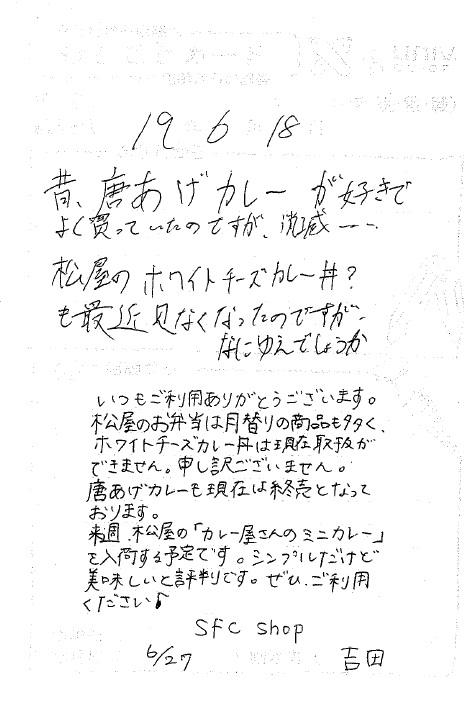 19 6 18
昔、唐あげカレーが好きで
よく買っていたのですが、消滅……
松屋のホワイトチーズカレー丼?
も最近見なくなったのですが、
なにゆえでしょうか
いつもご利用ありがとうございます。
松屋のお弁当は月替りの商品も多く、
ホワイトチーズカレー丼は現在取扱が
できません。申し訳ございません。
唐あげカレーも現在は終売となって
おります。
来週、松屋の「カレー屋さんのミニカレー」
を入荷する予定です。シンプルだけど
美味しいと評判です。ぜひ、ご利用
ください♪
SFC Shop
6/27 吉田